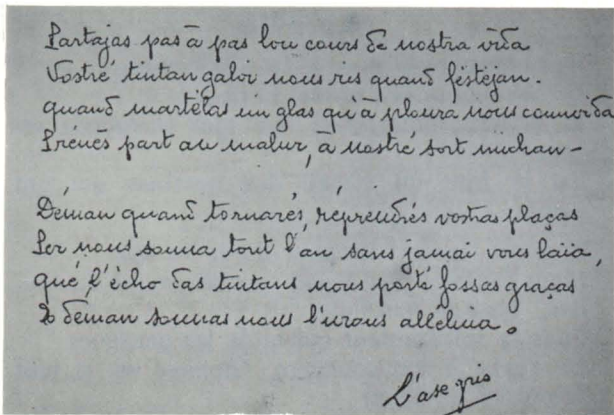 Partajas pas à pas lou cours dé nostra vida
Vostré tintan galoi nous ris quand féstéjan.
quand martélas un glas qu'à ploura nous counvida
Prénés part au malur, à nostré sort michan -
Déman quand tornarés, réprendrés vostras plaças
Per nous souna tout l'an sans jamai vous laia,
qué l'écho das tintans nous porté fossas graças
& déman sounas nous l'urous alléluia.
L'ase gris